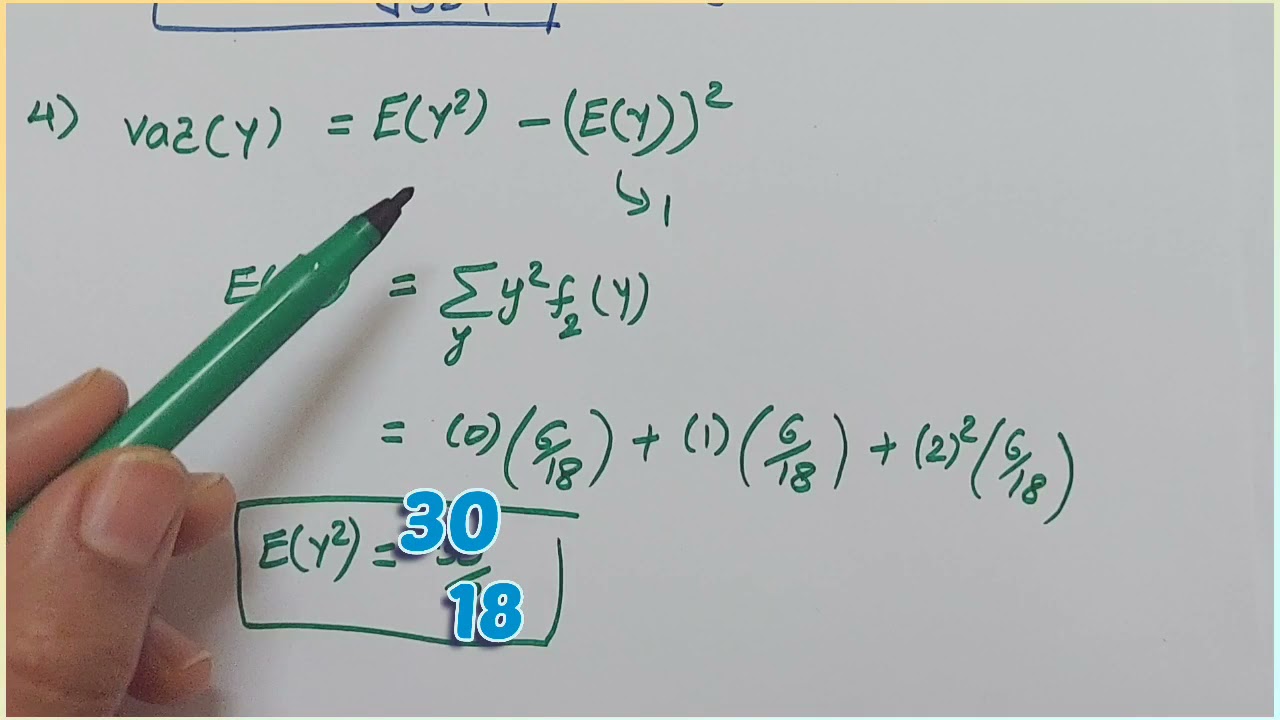 4) var(Y) = E(Y²) - (E(Y))²
↳ 1
E( = Σ y² f₂(Y)
y
= (0)(6/18) + (1)(6/18) + (2)²(6/18)
E(Y²) = 30
18